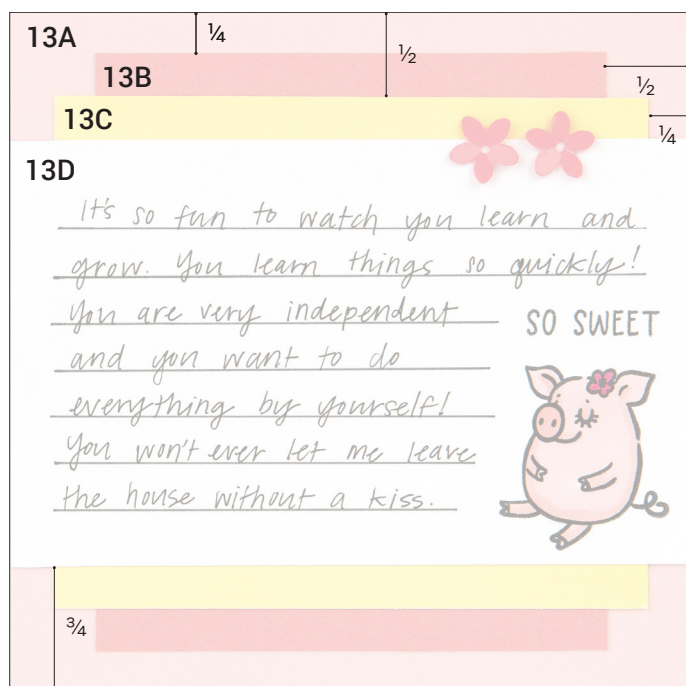 13A
¼
½
13B
½
13C
¼
13D
It's so fun to watch you learn and
grow. You learn things so quickly!
You are very independent
SO SWEET
and you want to do
everything by yourself!
You won't ever let me leave
the house without a kiss.
¾